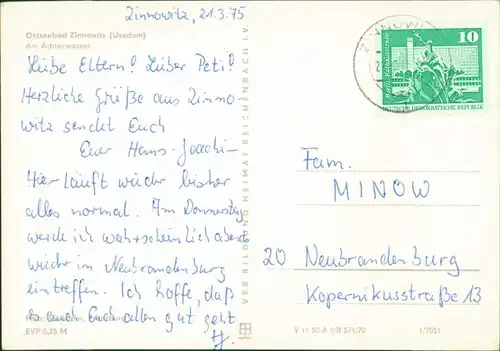 Zinnowitz, 21.3.75
Ostseebad Zinnowitz (Usedom)
Am Achterwasser
Liebe Eltern! Lieber Peti!
Herzliche Grüße aus Zinno-
witz sendet Euch
Euer Hans-Joachi-
Hier läuft wieder bisher
alles normal. Am Donnerstag
werde ich wahrscheinlich abends
wieder in Neubrandenburg
eintreffen. Ich hoffe, daß
es auch Euch allen gut geht
EVP 0,25 M
VEB BILD UND HEIMAT REICHENBACH I. V.
ZINNOWITZ
10
DEUTSCHE DEMOKRATISCHE REPUBLIK
Fam.
MINOW
20 Neubrandenburg
Kopernikusstraße 13
V 11 50 A 1/B 571/70 1/7051